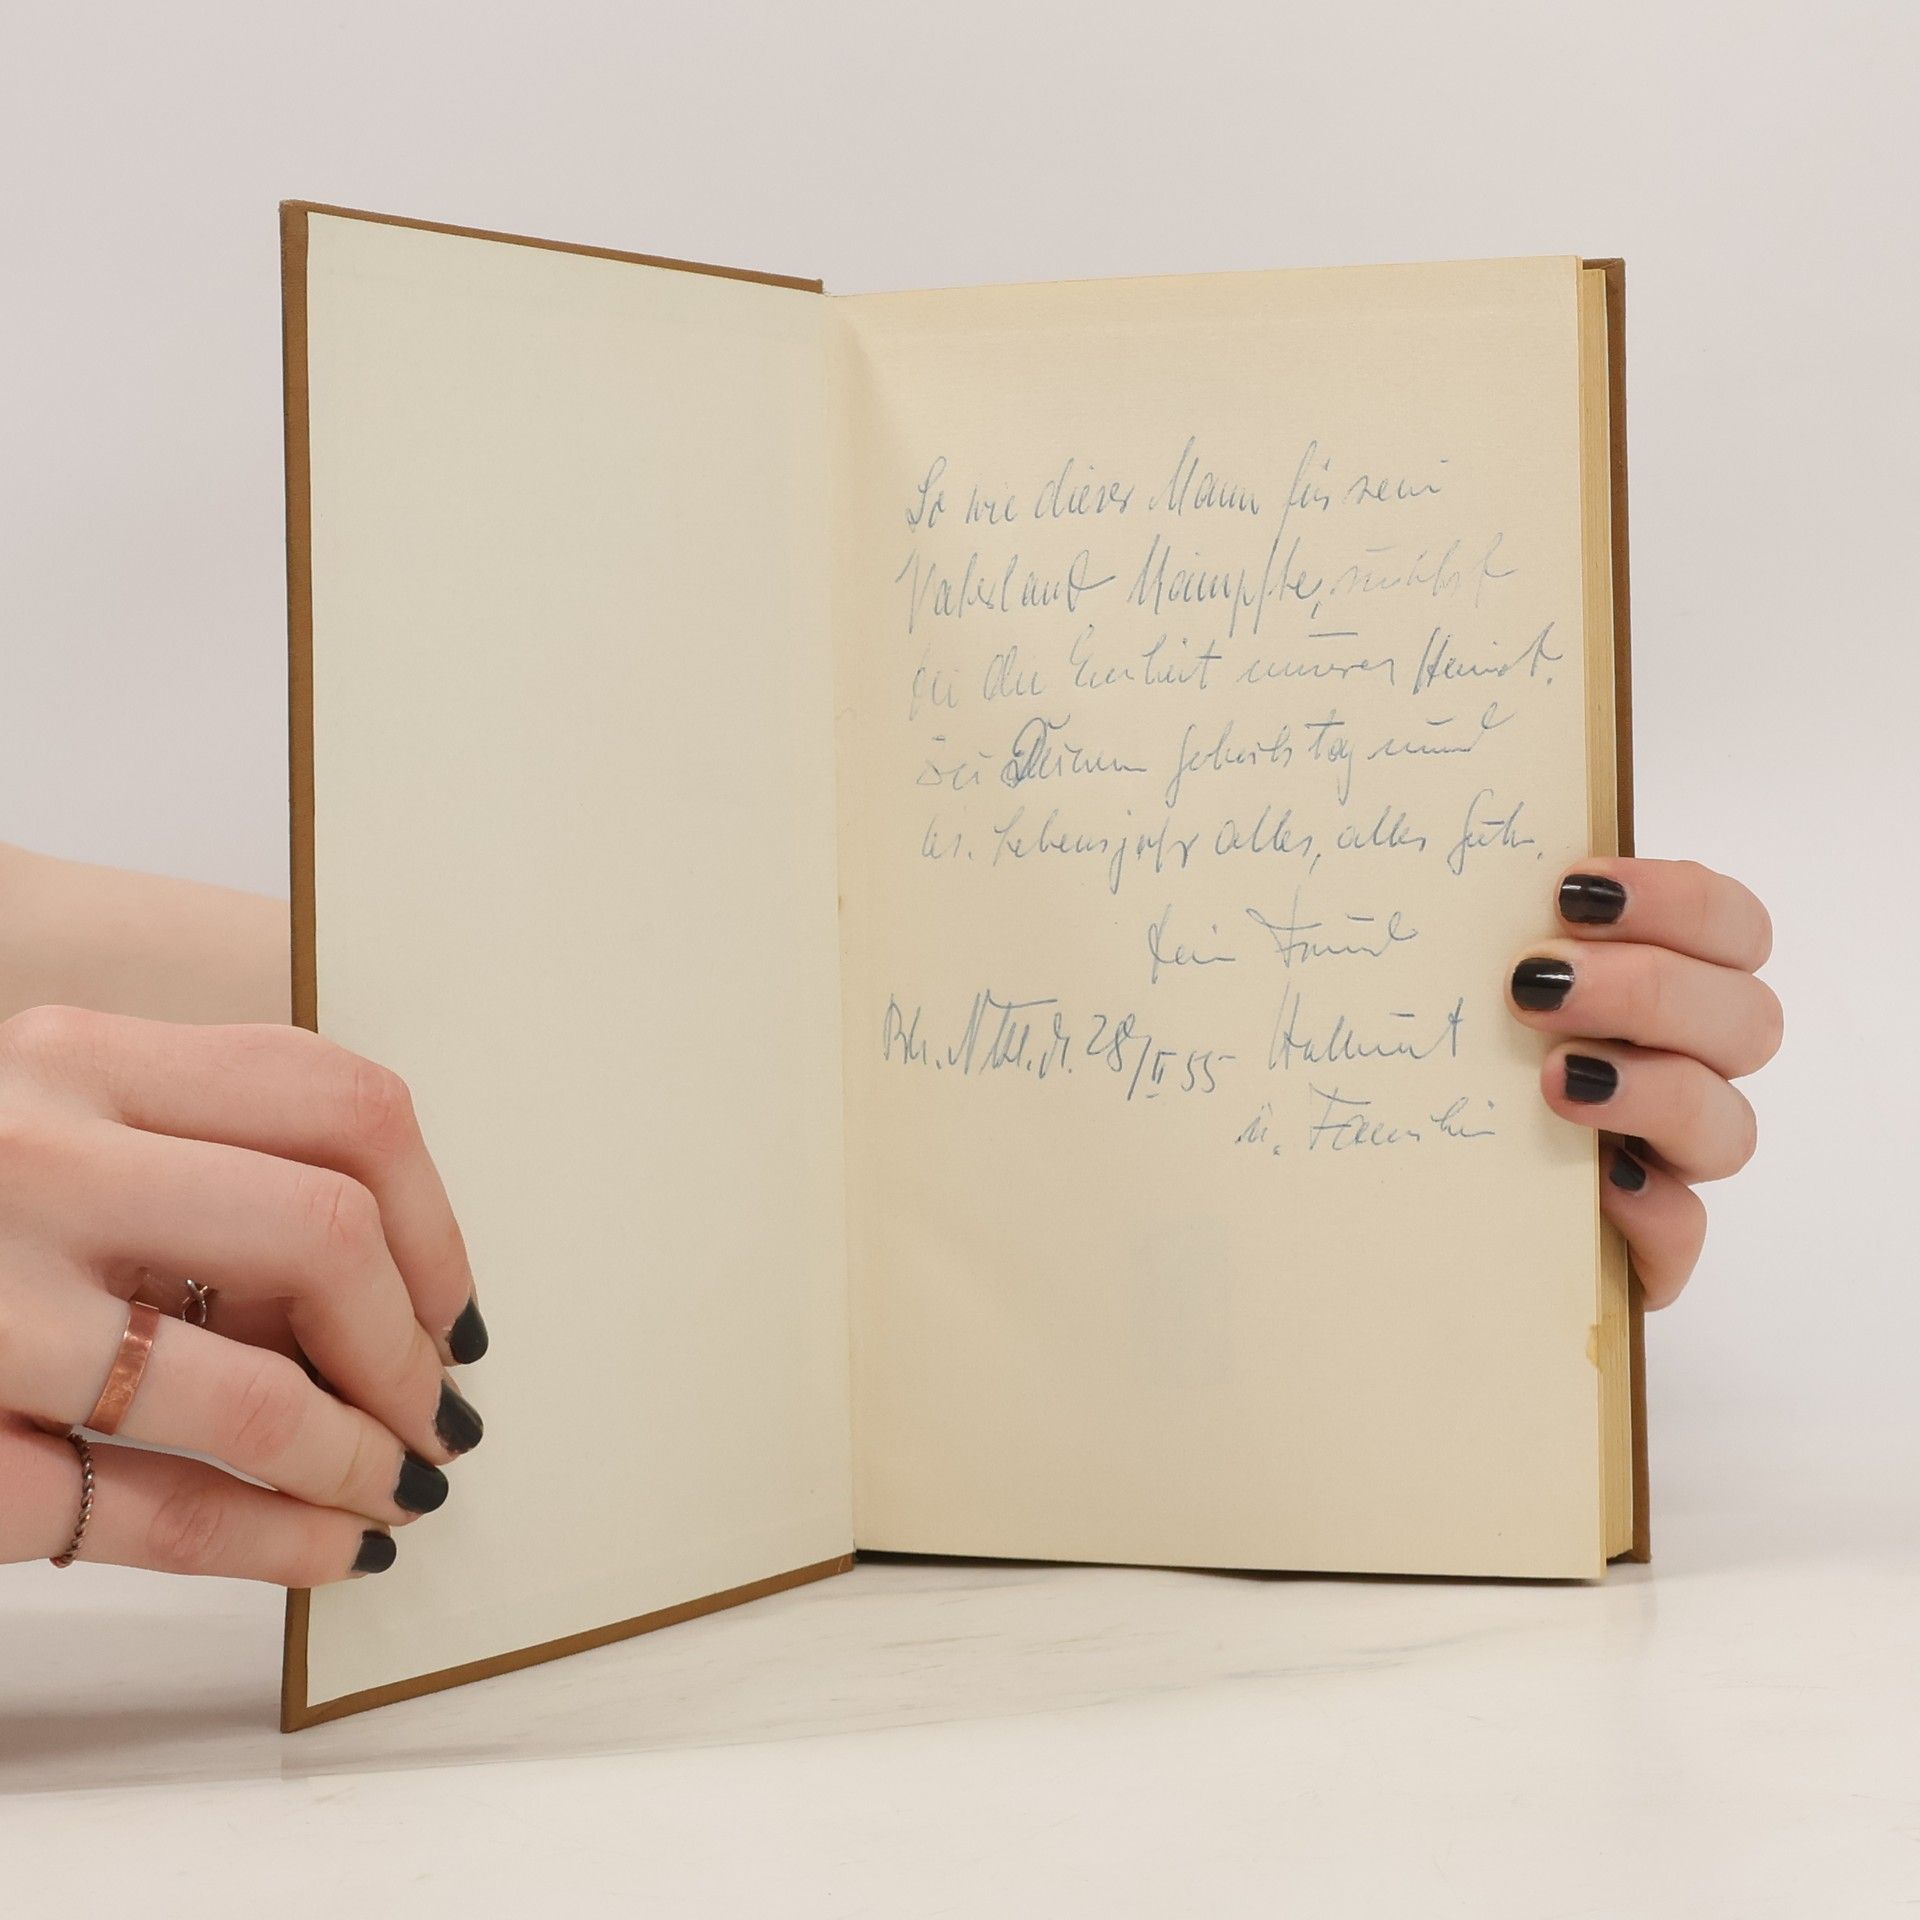 So wie dieser Mann für sein
Vaterland kämpfte,
die Einheit unserer
Zu Deinem Geburtstag und
Lebensjahr alles, alles Gute.
Dein Freund
28/II 55 Hellmut
u. Familie